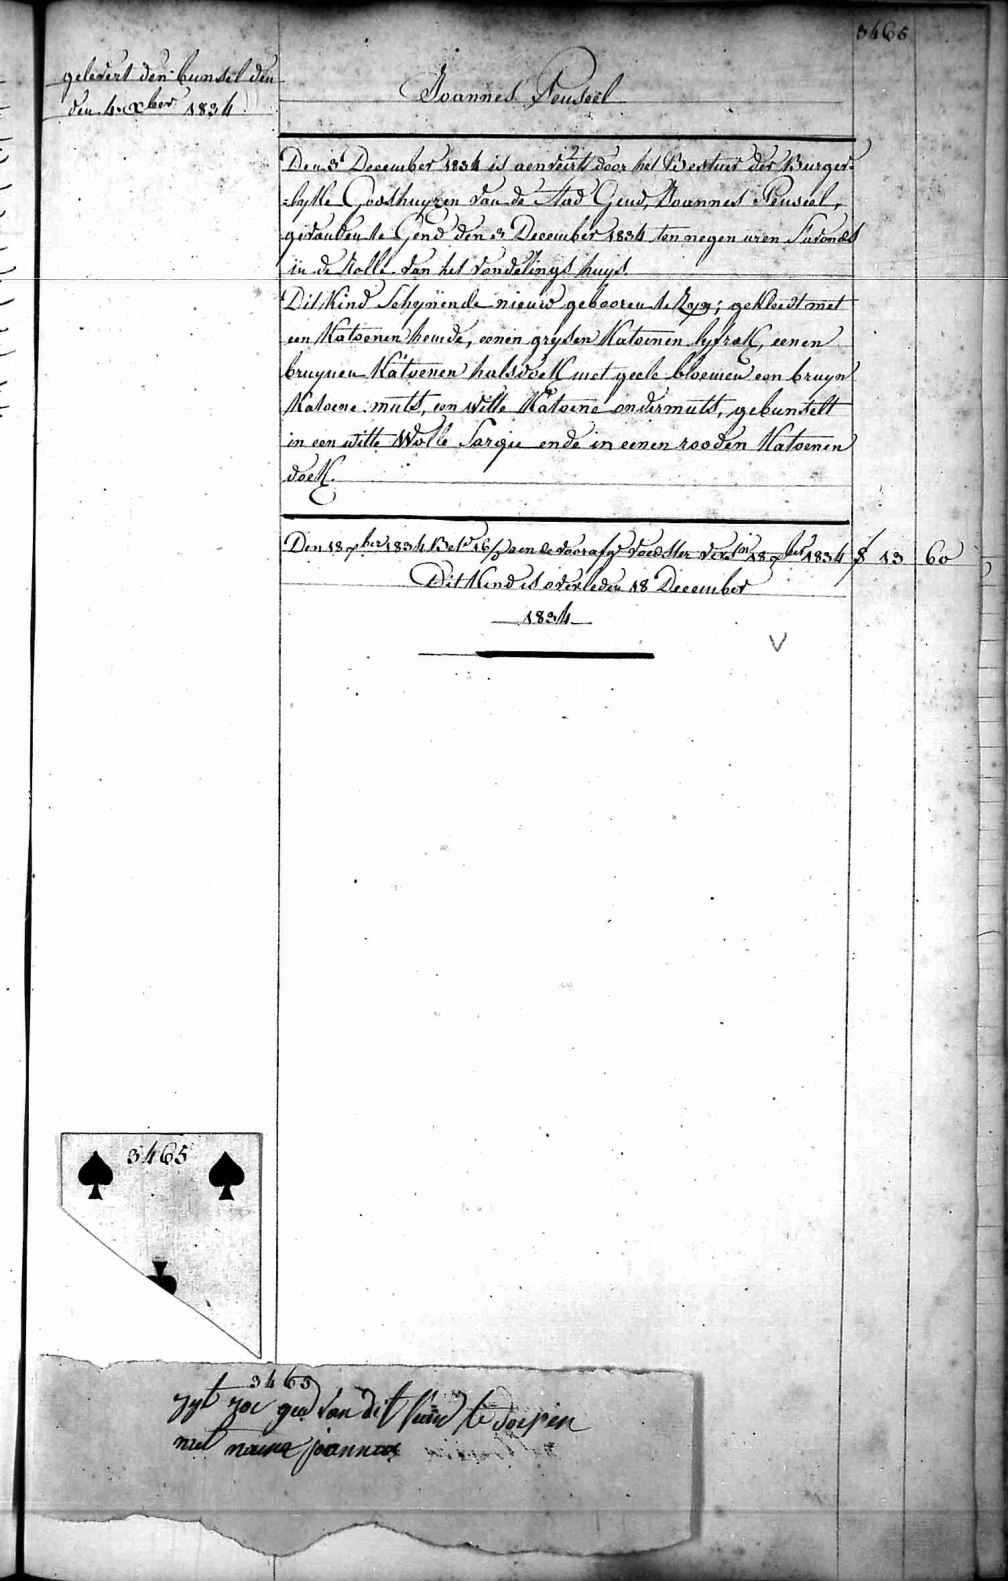 3465
gelevert den bunsel den
den 4 Xber 1834
Joannes Penseel
Den 3 December 1834 is aenveirt door het Bestuur der Burger-
-lyke Godshuyzen van de Stad Gend, Joannes Penseel,
gevonden te Gend den 3 December 1834 ten negen uren S'avonds
in de Rolle van het vondelings huys
Dit Kind Schynende nieuw gebooren te Zyn; gekleedt met
een Katoenen hemde, eenen grysen Katoenen lyfrok, eenen
bruynen Katoenen halsdoek met geele bloemen een bruyn
Katoene muts, een witte Katoene ondermuts, gebunselt
in een witte Wolle Sargie ende in eenen rooden Katoenen
doek.
Den 18 Xber 1834 aen de voedster 1834 13 60
Dit Kind is overleden 18 December
1834
3465
3465
zyt zoo goed van dit kind te doepen
met naeme joannes